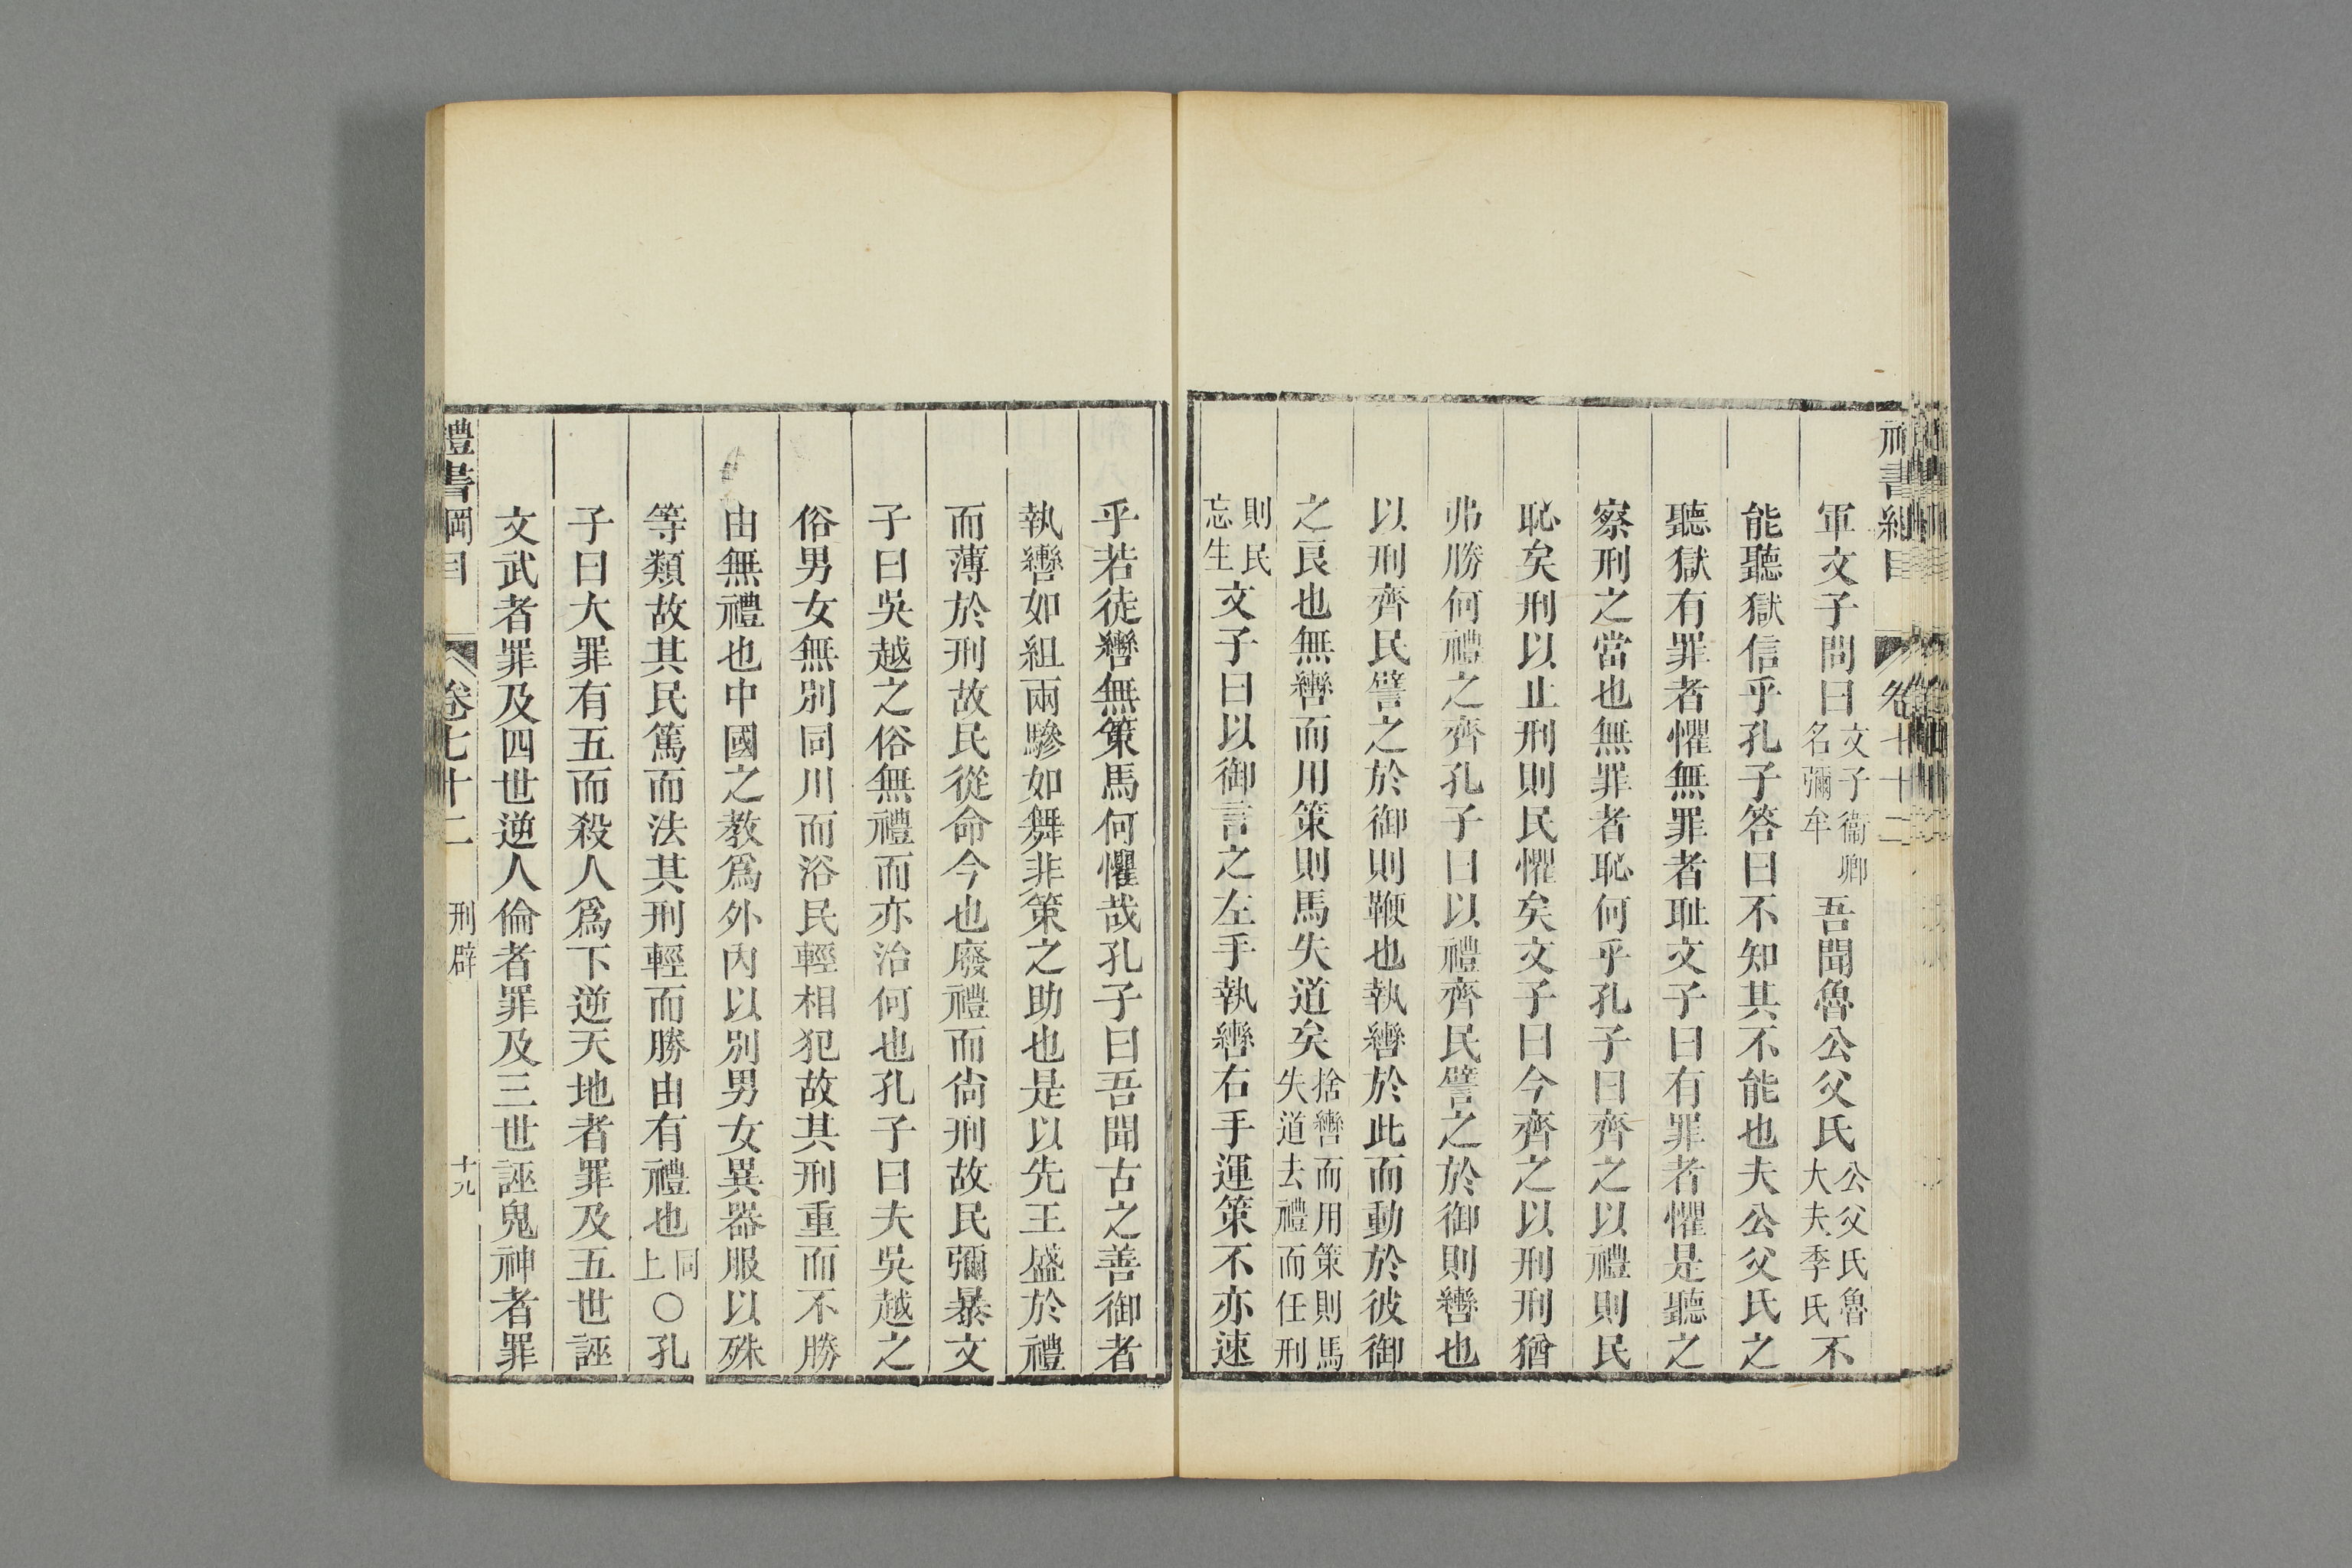 軍文子問曰文子衞卿名彌牟吾聞魯公父氏公父氏魯大夫季氏不
能聽獄信乎孔子答曰不知其不能也夫公父氏之
聽獄有罪者懼無罪者耻文子曰有罪者懼是聽之
察刑之當也無罪者恥何乎孔子曰齊之以禮則民
恥矣刑以止刑則民懼矣文子曰今齊之以刑刑猶
弗勝何禮之齊孔子曰以禮齊民譬之於御則轡也
以刑齊民譬之於御則鞭也執轡於此而動於彼御
之良也無轡而用策則馬失道矣捨轡而用策則馬失道去禮而任刑
則民忘生文子曰以御言之左手執轡右手運策不亦速
乎若徒轡無策馬何懼哉孔子曰吾聞古之善御者
執轡如組兩驂如舞非策之助也是以先王盛於禮
而薄於刑故民從命今也廢禮而尙刑故民彌暴文
子曰吳越之俗無禮而亦治何也孔子曰夫吳越之
俗男女無別同川而浴民輕相犯故其刑重而不勝
由無禮也中國之教爲外內以別男女異器服以殊
等類故其民篤而法其刑輕而勝由有禮也同上○孔
子曰大罪有五而殺人爲下逆天地者罪及五世誣
文武者罪及四世逆人倫者罪及三世誣鬼神者罪
禮書綱目 卷七十二 刑辟 十九